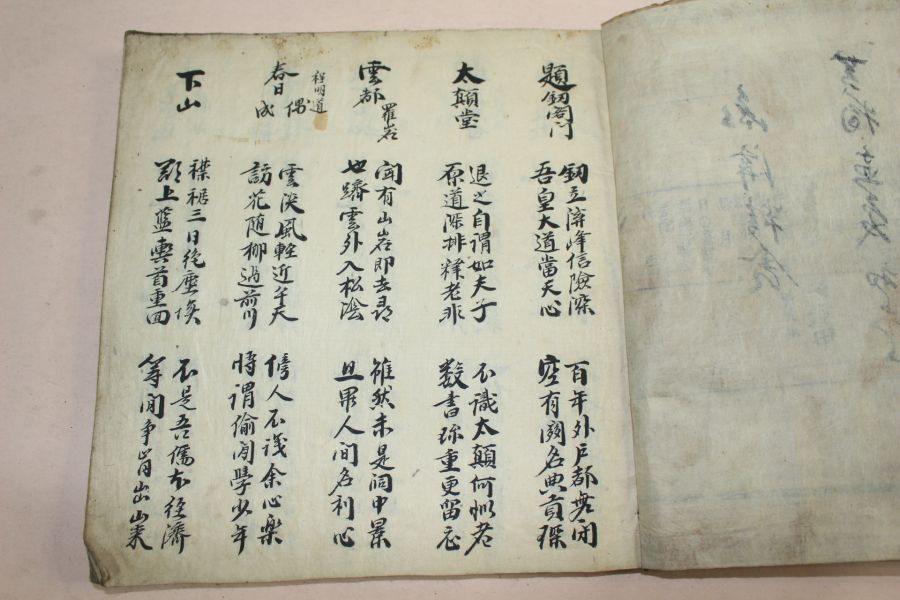 題釰閣門
釰立諸峰信險深
吾皇大道當天心
百年外戶都無閉
空有關名典貢琛
太顚堂
退之自謂如夫子
原道深排釋老非
不識太顚何似者
数書珎重更留衣
雲都
羅岩
聞有山岩即去尋
也躋雲外入松陰
雖然未是洞中景
且異人間名利心
程明道
春日偶成
雲淡風輕近午天
訪花隨柳過前川
傍人不識余心樂
時謂偷閑學少年
下山
襟裾三日絶塵埃
欲上藍輿首重回
不是吾儒本經濟
等閒爭肯出山來